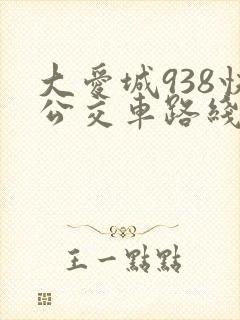 大愛城938快
公交車路綫
王一點點